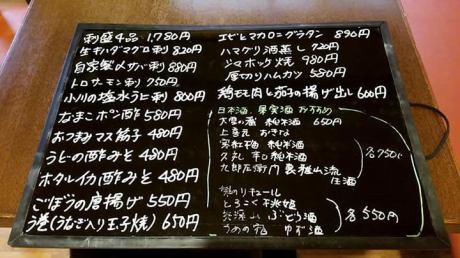 刺盛4品 1,780円
生本ハダマグロ刺 820円
自家製〆サバ刺 880円
トロサーモン刺 750円
小川の塩水うに刺 800円
なまこポン酢 580円
おつまみマス筋子 480円
うどの酢みそ 480円
ホタルイカ酢みそ 480円
ごぼうの唐揚げ 550円
う巻(うなぎ入り玉子焼) 650円
エビとマカロニグラタン 890円
ハマグリ酒蒸し 720円
シマホッケ焼 980円
厚切りハムカツ 580円
鶏もも肉と茄子の揚げ出し 600円
日本酒 果実酒 おすすめ
大雪の蔵 純米酒 650円
上喜元
純米酒
久礼 辛口 純米酒
九郎左衛門 裏雅山流
各750円
リキュール
とろこく 桃姫
ぶどう酒
うめの宿 ゆず酒
各550円